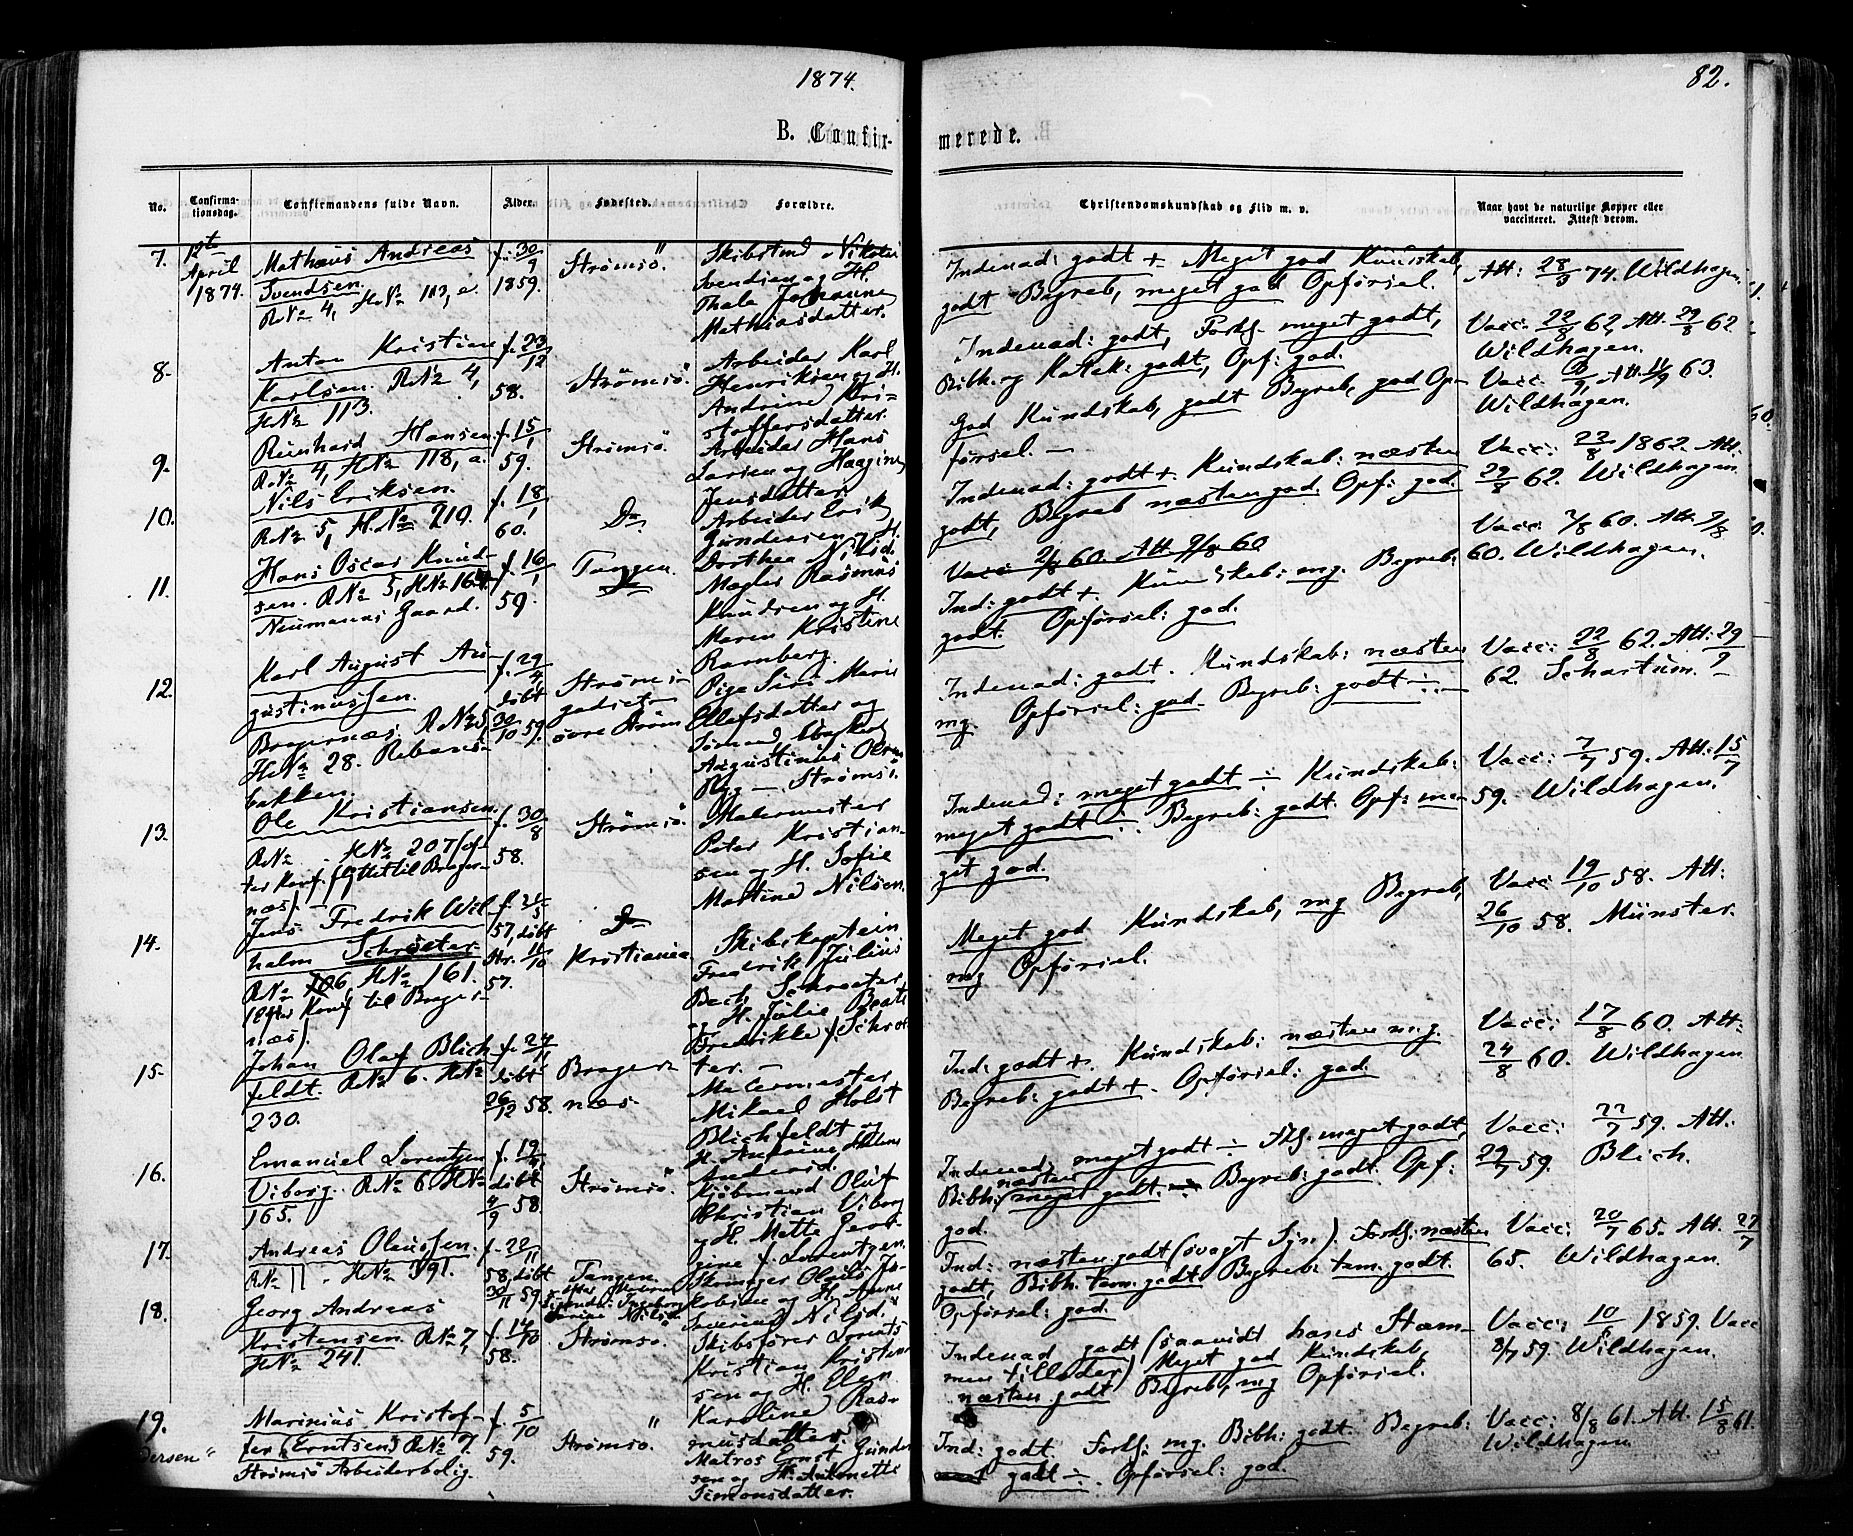 1874.
82.
B. Confir-
merede.
No.
Confirma-
tionsdag.
Confirmandens fulde Navn.
Alder.
Fødested.
Forældre.
Christendomskundskab og Flid m. v.
Naar havt de naturlige Kopper eller
vaccineret. Attest derom.
7.
12te
April
1874.
Mathæus Andreas
Svendsen.
R№ 4, H№ 113, a.
f. 30/9
1859.
Strømsö.
Svendsen og H.
Thala Johanne
Mathiasdatter.
Indenad: godt + Meget god Kundskab,
godt Begreb, meget god Opførsel.
Att: 28/3 74. Wildhagen.
8.
Anton Kristian
Karlsen. R№ 4,
H№ 113.
f. 23/12
58.
Strömsö.
Arbeider Karl
Henriksen og H.
Andrine Kri-
stoffersdatter.
Indenad: godt, Forkl. meget godt,
Bibh. og Katek: godt, Opf: god.
Vacc. 22/8 62, Att. 29/8 62
Wildhagen.
9.
Reinhard Hansen
R.№ 4, H№ 118, a.
f. 15/1
59.
Strömsö.
Arbeider Hans
Larsen og Haagine
Jensdatter
God Kundskab, godt Begreb, god Op-
førsel. —
63.
Wildhagen.
10.
Nils Eriksen.
R№ 5, H.№ 210.
f. 18/1
60.
Do
Arbeider Erik
Gundersen og H.
Dorthea Nilsd.
Indenad: godt + Kundskab: næsten
godt, Begreb næsten god. Opf: god
Vacc: 22/8 1862. Att:
29/8 62. Wildhagen
11.
Hans Oscar Knud-
sen. R№ 5, H№ 164
Neumanns Gaard.
f. 16/1
59.
Tangen.
Mægler Rasmus
Knudsen og H.
Maren Kristine
Ramberg.
Vacc 2/8 60. Att 9/8 60
Ind: godt +. Kundskab: mg. Begreb:
godt. Opførsel: god.
Vacc: 2/8 60. Att. 9/8
60. Wildhagen.
12.
Karl August Au-
gustinussen.
Bragernæs. R№ 5,
H№ 28. Rebans-
bakken.
f. 29/4
döbt
30/10 59.
Pige Siri Marie
Ollefsdatter og
Augustinus Olsen
Ryg — Strömsö.
Indenad: godt. Kundskab: næsten
mg. Opførsel: god. Begreb: godt ÷. —
Vacc: 22/8 62. Att: 29/9
62. Schartum. —
13.
Ole Kristiansen.
R№ . H№ 207 (ef-
ter Konf. flyttet til Brager-
næs) —
f. 30/8
58.
Strömsö.
Malermester
Peter Kristian-
sen og H. Sofie
Martine Nilsen.
Indenad: meget godt ÷ Kundskab:
meget godt ÷. Begreb: godt. Opf: me-
get god.
Vacc: 7/7 59. Att: 15/7
59. Wildhagen.
14.
Jens Fredrik Wil-
halm Schrøeter
R№ 6, H№ 161.
(efter Konf til Brager-
næs).
57, döbt
57.
Do
Kristiania
Skibskaptein
Fredrik Julius
Bech Schroeter
og H. Julie Beate
Fredrikke f. Schroe-
ter. —
Meget god Kundskab, mg Begreb,
mg Opførsel.
Vacc 19/10 58. Att:
26/10 58. Münster.
15.
Johan Olaf Blich
feldt. R№ 6. H№
230.
f. 24/11
döbt
26/12 58.
Brager-
næs.
Malermester
Mikael Holst
Blichfeldt og
Andersd.
Ind: godt +. Kundskab: næsten mg.
Begreb: godt +. Opførsel: god.
Vacc: 17/8 60. Att:
24/8 60. Wildhagen
16.
Emanuel Lorentzen
Viborg. R№ 6 H№
165.
döbt
4/9 58
Strömsö.
Kjöbmand Oluf
Christian Viborg
og H. Mette Geor-
gine f. Lorentzen.
Indenad: meget godt ÷ Fkl. meget godt,
Bibh: næsten meget godt. Begreb: godt. Opf:
god.
Vacc: 22/7 59. Att:
29/7 59. Blich.
17.
Andreas Olaussen.
R№ 11. H№ 391.
f. 22/11
58, döbt
Tangen
Ind: næsten godt (svagt Syn). Forkl: næsten
godt, Bibh. tem. godt. Begreb: tem. godt.
Opførsel: god.
Vacc: 20/7 65. Att. 27/7
65. Wildhagen.
18.
Georg Andreas
Kristensen R№ 7,
H№ 241.
f. 14/10
58.
Strömsö.
Skibsfører Lorents
Kristian Kristen-
sen og H. Elen
Karoline Ras-
musdatter.
Indenad godt (saavidt hans Stam-
men tillader) Meget god Kundskab,
næsten godt Begreb, mg Opførsel.
1859. Vacc
59. Wildhagen.
19.
Marinius Kristof-
fer (Erntsen) R№ 7.
Strömsö Arbeiderbolig.
f. 5/10
59.
Strömsö.
Matros Ernst Gunder
sen og H. Antonette
Simonsdatter.
Ind: godt Forkl: mg. Bibh: godt. Begreb:
godt ÷. Opførsel: god.
Vacc: 8/8 61. Att. 15/8 61.
Wildhagen.